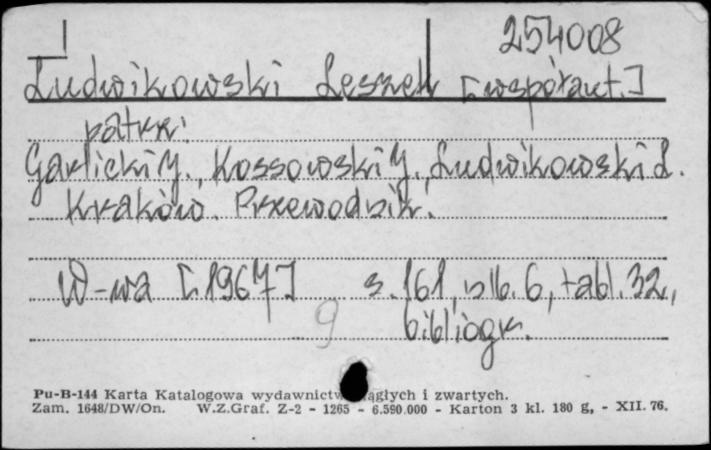 254008
Ludwikowski Leszek [współaut.]
patrz:
Garlicki J., Kossowski J., Ludwikowski L.
Kraków. Przewodnik.
W-wa [1967] s. 161, nlb. 6, tabl. 32,
bibliogr.
9
Pu-B-144 Karta Katalogowa wydawnictw ciągłych i zwartych.
Zam. 1648/DW/On. W.Z.Graf. Z-2 - 1265 - 6.590.000 - Karton 3 kl. 180 g, - XII. 76.